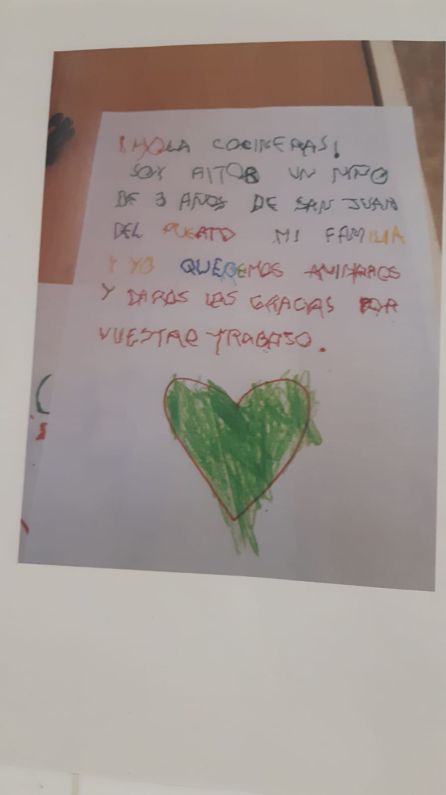 ¡HOLA COCINERAS!
SOY AITOR UN NIÑO
DE 3 AÑOS DE SAN JUAN
DEL PUERTO MI FAMILIA
Y YO QUEREMOS ANIMAROS
Y DAROS LAS GRACIAS POR
VUESTRO TRABAJO.